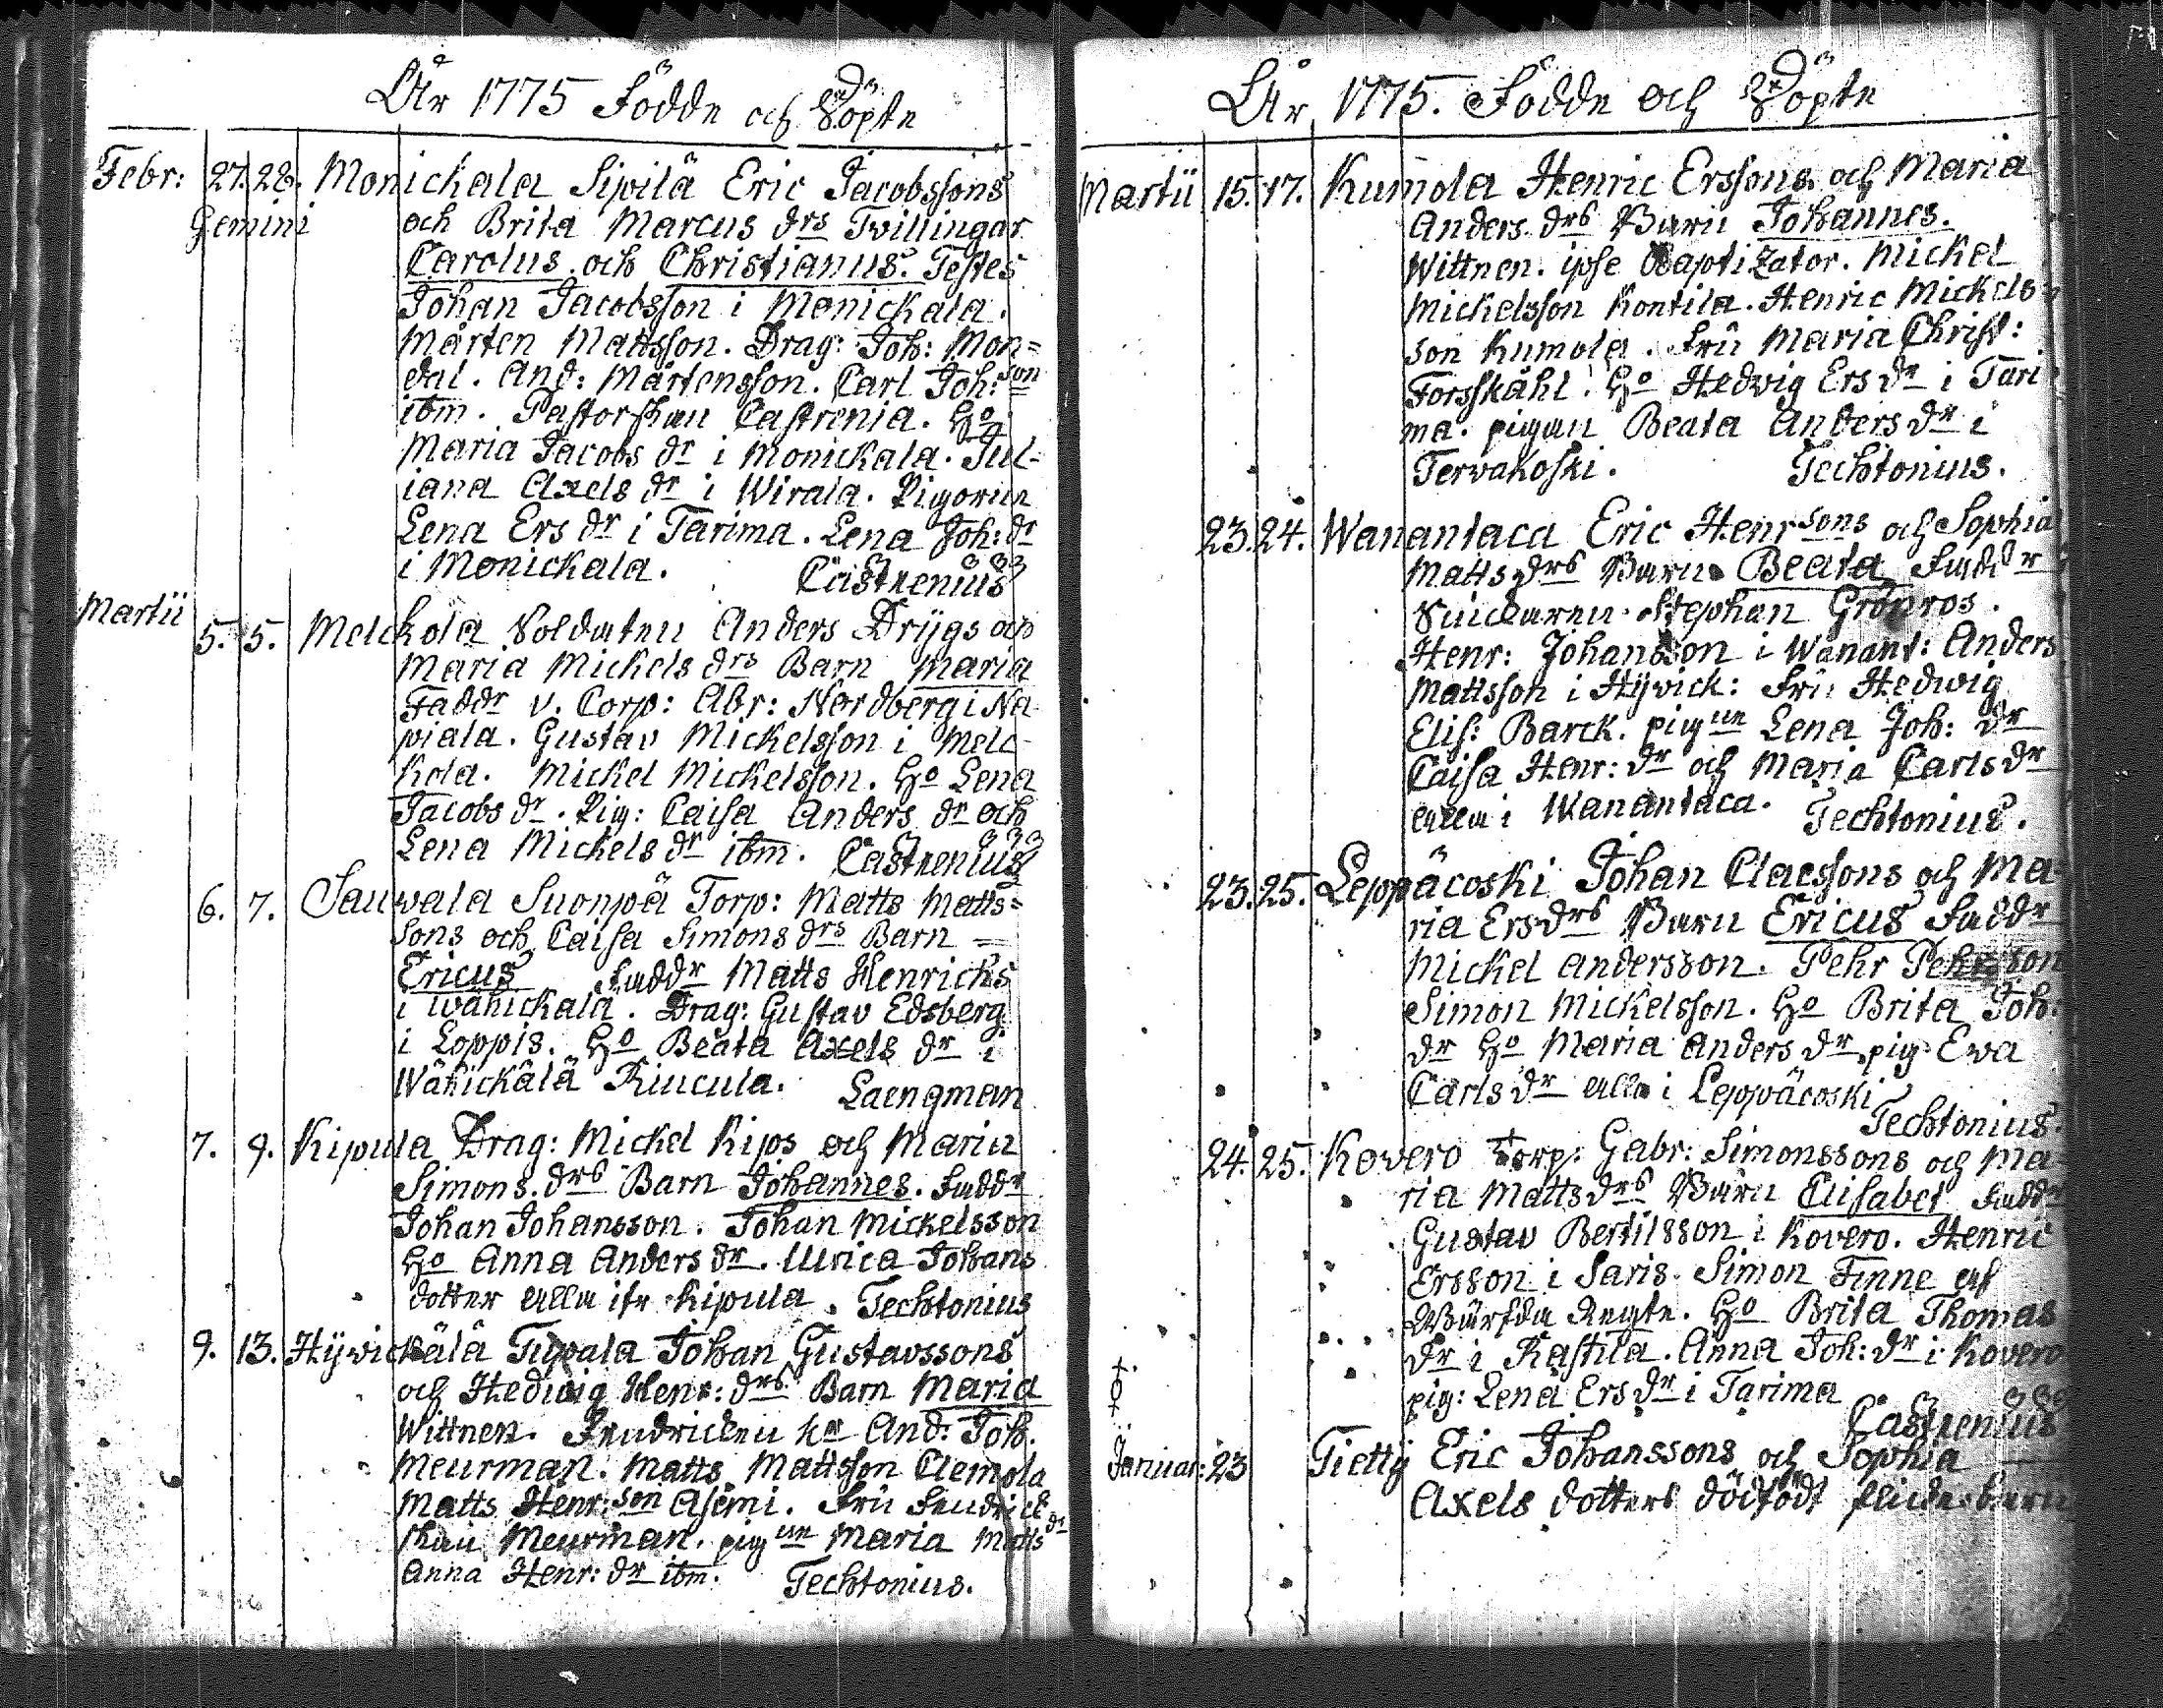 År 1775 Födde och Döpte
Febr: 27. 28. Monickala Sipilä Eric Jacobssons
Gemini och Brita Marcus drs Tvillingar
Carolus och Christianus. Testes
Johan Jacobsson i Monickala.
Mårten Mattsson. Drag: Joh: Mon=
dal. And: Mårtensson. Carl Joh: son
ibm. Pastorskan Castrenia. Ho
Maria Jacobs dr i Monickala. Jul=
iana Axels dr i Wirala. Pigorne
Lena Ers dr i Tarima. Lena Joh: dr
i Monickala. Castrenius
Martii 5. 5. Melckola Soldaten Anders Drygs och
Maria Mickels drs Barn Maria
Faddr v. Corp: Abr: Nordberg i Na
piala. Gustav Mickelsson i Melc
kola. Mickel Mickelsson. Ho Lena
Jacobs dr. Pig: Caisa Anders dr och
Lena Mickels dr ibm. Castrenius
6. 7. Sauvala Suonpä Torp: Matts Matts=
sons och Caisa Simons drs Barn =
Ericus Faddr Matts Henrichs
i Wähickälä. Drag: Gustav Edsberg
i Loppis. Ho Beata Axels dr i
Wähickälä Kiucula. Laengman
7. 9. Kipula Drag: Mickel Kips och Maria
Simons. drs Barn Johannes. Faddr
Johan Johansson. Johan Mickelsson
Ho Anna Anders dr. Ulrica Johans
dotter alla ifr Kipula. Techtonius
9. 13. Hyvickälä Tupala Johan Gustavssons
och Hedwig Henr: drs Barn Maria
Wittnen. Fendricken hr And: Joh.
Meurman. Matts Mattsson Clemola
Matts Henr: son Asemi. Fru Fendrick
skan Meurman. pig ne Maria Matts dr
Anna Henr: dr ibm. Techtonius.
År 1775. Födde och Döpte
Martii 15. 17. Kumola Henric Erssons och Maria
Anders drs Barn Johannes.
Wittnen. ipse Baptizator. Mickel
Mickelsson Kontila. Henric Mickels
son Kumola. Fru Maria Christ:
Forsskåhl. Ho Hedvig Ers dr i Tari
ma. pigan Beata Anders dr i
Tervakoski. Techtonius.
23. 24. Wanantaca Eric Henr sons och Sophia
Matts drs Barn Beata Faddr
Snickaren Stephan Grönros.
Henr: Johansson i Wanant: Anders
Mattsson i Hyvick: Fru Hedwig
Elis: Barck. pig ne Lena Joh: dr
Caisa Henr: dr och Maria Carls dr
alla i Wanantaca. Techtonius.
23. 25. Leppäcoski Johan Claessons och Ma=
ria Ers drs Barn Ericus Faddr
Mickel Andersson. Pehr Pehrsson
Simon Mickelsson. Ho Brita Joh:
dr Ho Maria Anders dr pig Ewa
Carls dr alla i Leppäcoski
Techtonius.
24. 25. Kovero Torp: Gabr: Simonssons och Ma
ria Matts drs Barn Elisabet Faddr
Gustav Bertilsson i Kovero. Henric
Ersson i Saris. Simon Finne af
Ho Brita Thomas
dr i Rastila. Anna Joh: dr i Kovero
pig: Lena Ers dr i Tarima
Castrenius
Januar: 23 Tietty Eric Johanssons och Sophia
Axels dotters dödfödt flicke barn